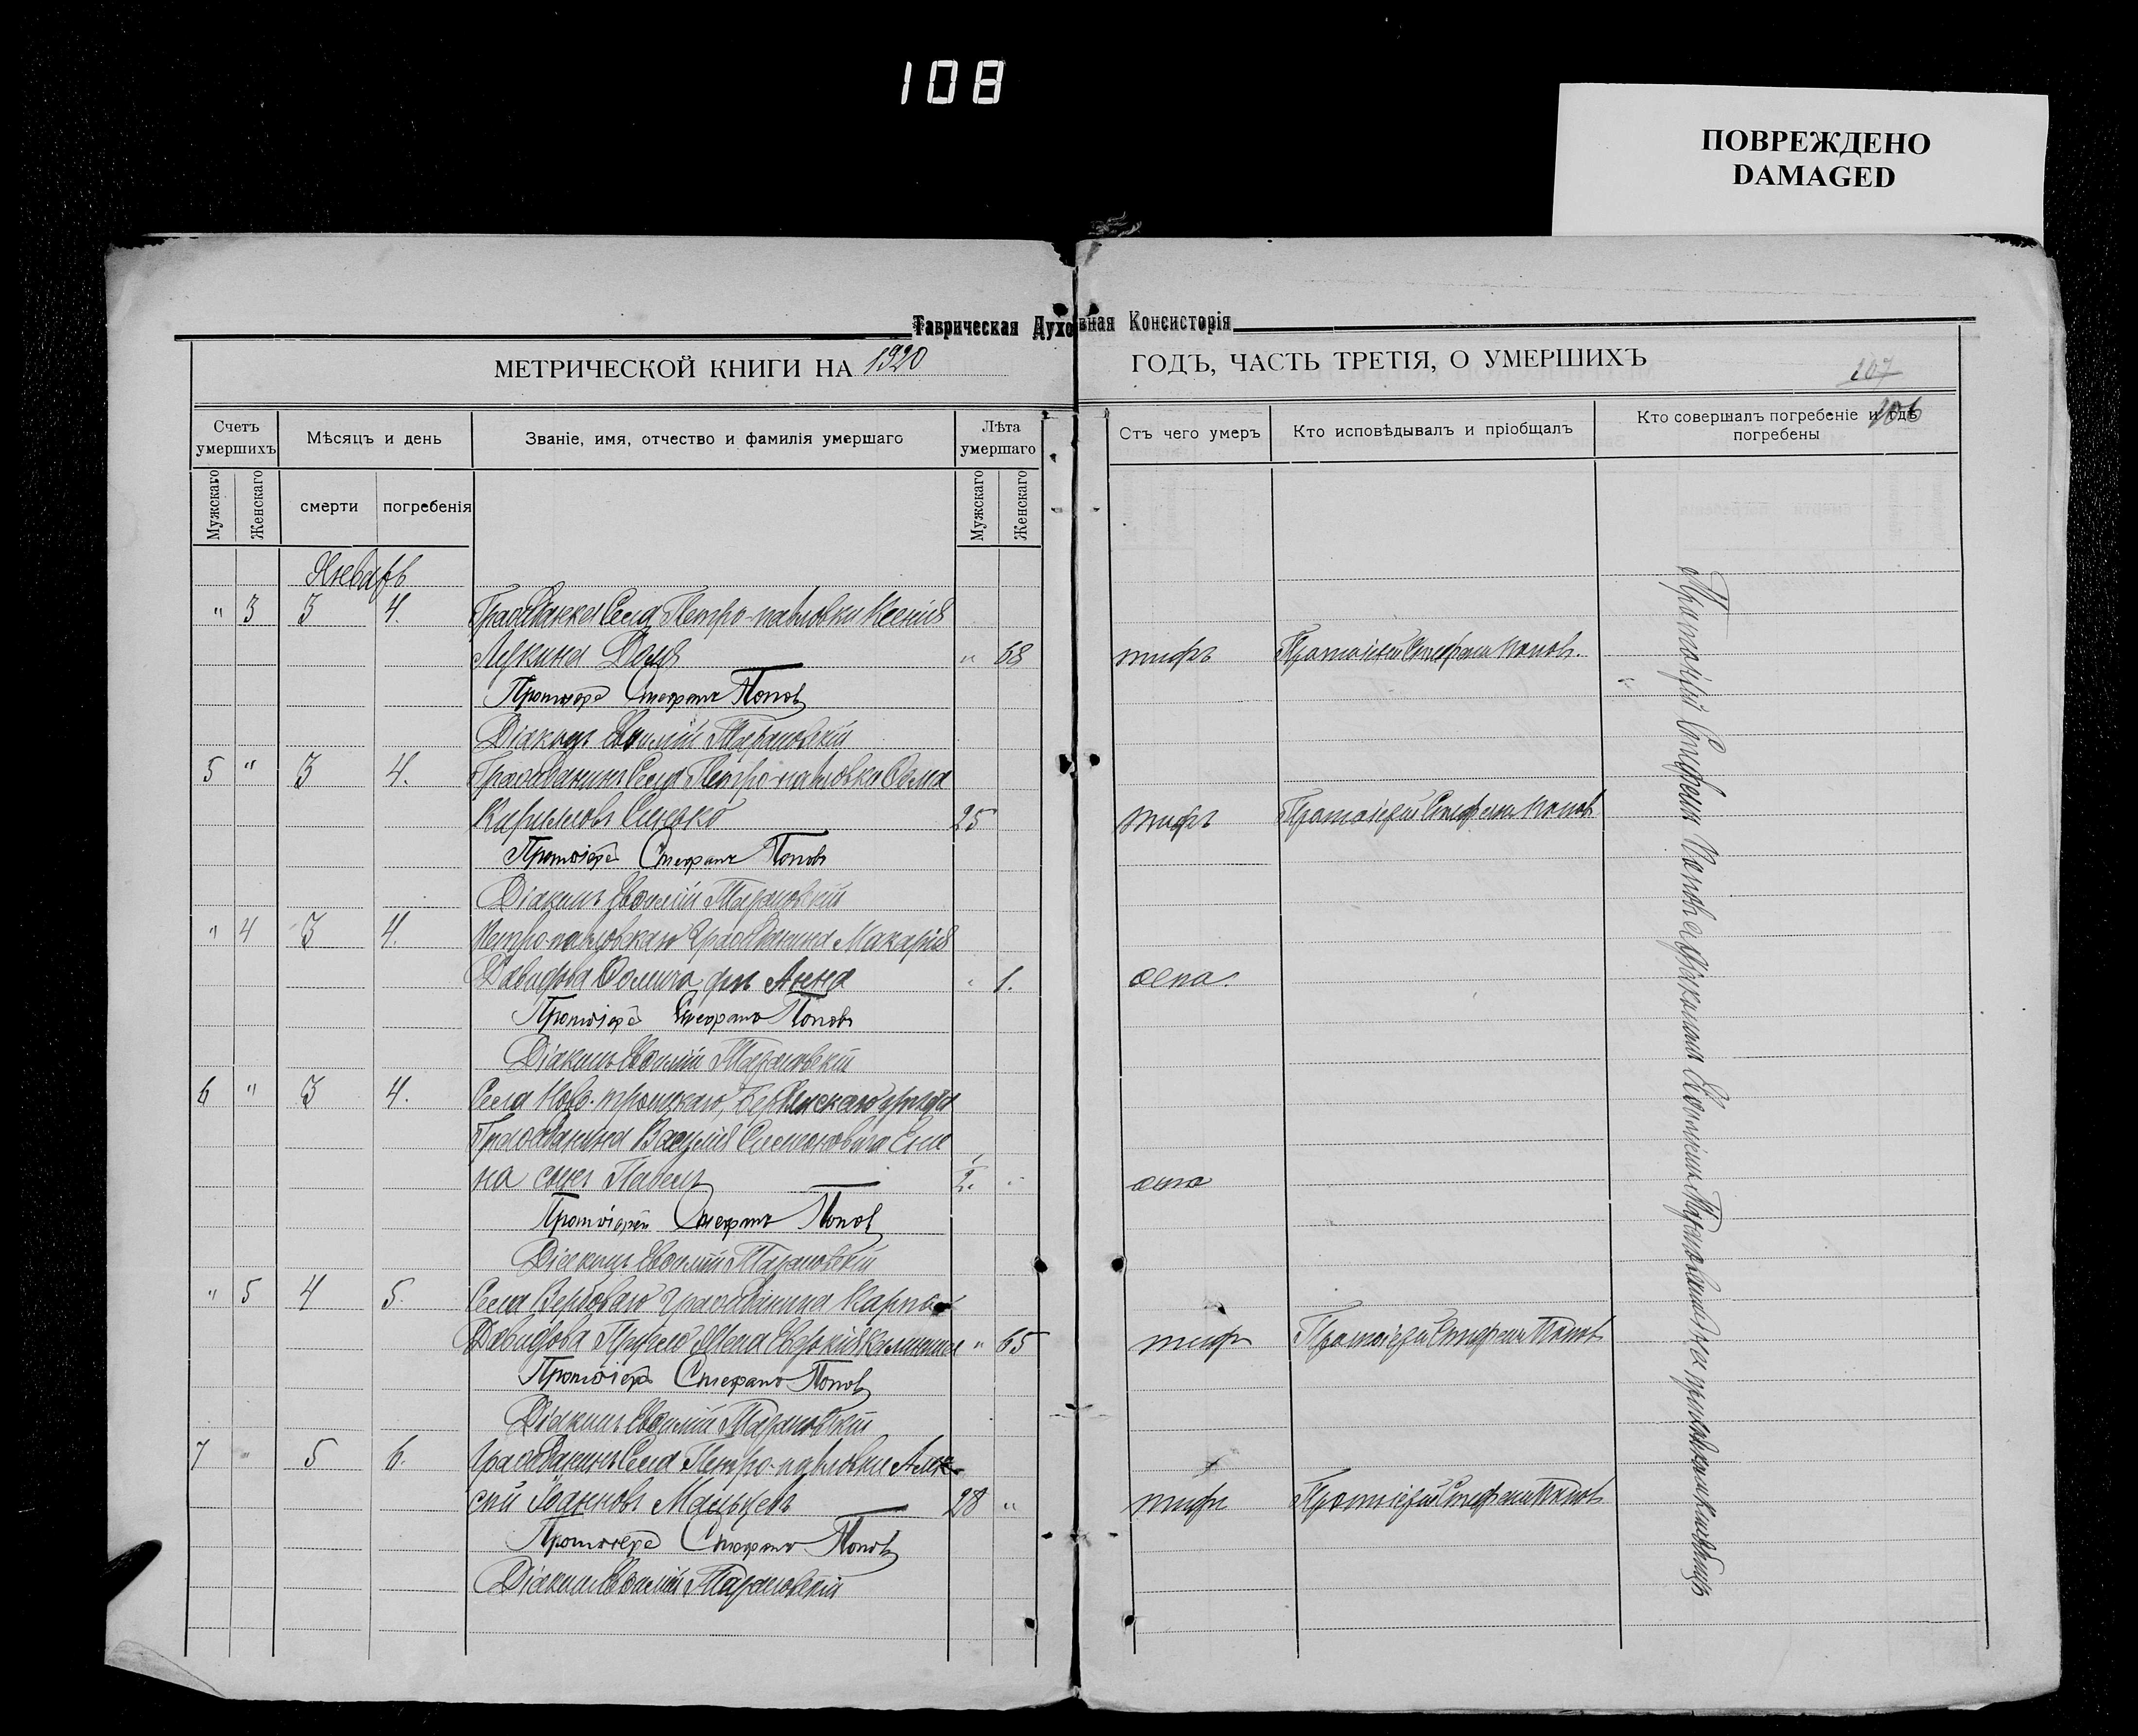 108
ПОВРЕЖДЕНО
DAMAGED
Таврическая Духовная Консисторія
МЕТРИЧЕСКОЙ КНИГИ НА 1920 ГОДЪ, ЧАСТЬ ТРЕТІЯ, О УМЕРШИХЪ
107
106
Счетъ умершихъ
Мѣсяцъ и день
Званіе, имя, отчество и фамилія умершаго
Лѣта умершаго
Отъ чего умеръ
Кто исповѣдывалъ и пріобщалъ
Кто совершалъ погребеніе и гдѣ погребены
Мужскаго
Женскаго
смерти
погребенія
Мужскаго
Женскаго
Январь
" 3 3 4. Гражданка Села Петро-павловки Ксенія
Лукина " 68 тифъ Протоіерей Стефанъ Поповъ.
Протоіерей Стефанъ Поповъ
Діаконъ Тарановскій
5 " 3 4. Гражданинъ Села Петро-павловки
Кирилловъ 25 тифъ Протоіерей Стефанъ Поповъ
Протоіерей Стефанъ Поповъ
Діаконъ Тарановскій
" 4 3 4. Петро-павловскаго Гражданина Макарія
Давидова дчь Анна " 1. оспа.
Протоіерей Стефанъ Поповъ
Діаконъ Тарановскій
6 " 3 4. Села Ново-троицкаго, Бердянскаго уезда
Гражданина Василія Симоновича
на сынъ Павелъ оспа
Протоіерей Стефанъ Поповъ
Діаконъ Тарановскій
" 5 4 5. Села Вербоваго Гражданина Карпа
Давидова жена " 65 тифъ Протоіерей Стефанъ Поповъ
Протоіерей Стефанъ Поповъ
Діаконъ Тарановскій
7 " 5 6. Гражданинъ Села Петро-павловки Алек-
сей Іоанновъ 28 " тифъ Протоіерей Стефанъ Поповъ
Протоіерей Стефанъ Поповъ
Діаконъ Тарановскій
Протоіерей Стефанъ Поповъ съ діакономъ Тарановскимъ на приходскомъ кладбищѣ